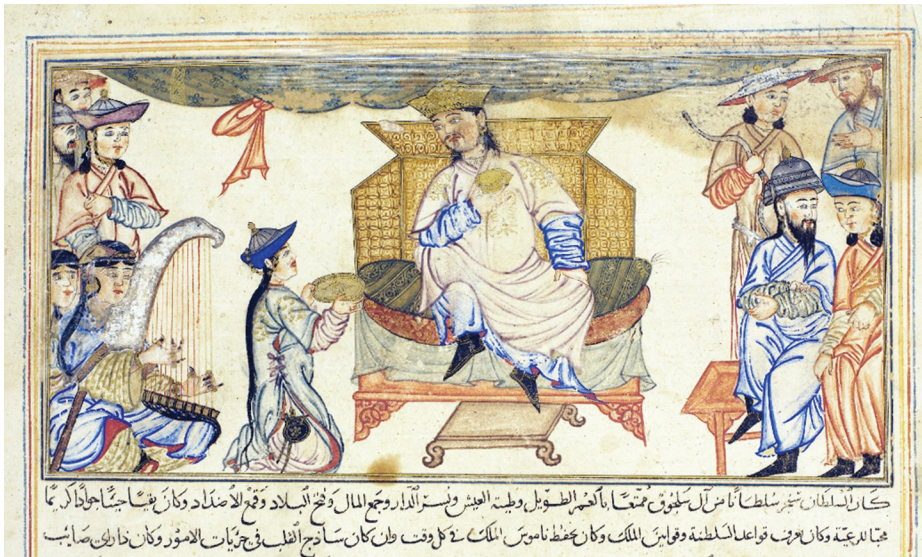 كان السلطان سنجر سلطانا من آل سلجوق ممتعا بالعمر الطويل وطيبة العيش ويسر الدار وجمع المال وفتح البلاد وقمع الاضداد وكان نقيا حييا جوادا كريما
محبا للرعية وكان يعرف قواعد السلطنة وقوانين الملك وكان يحفظ ناموس الملك في كل وقت وان كان ساذج القلب في جزيات الامور وكان ذا راى صايب